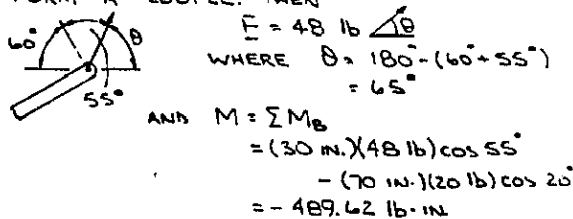 FORM A COUPLE. THEN
F = 48 lb ∠θ
60° θ
WHERE θ = 180° - (60° + 55°)
= 65°
55°
AND M = ΣM_B
= (30 IN.)(48 lb) cos 55°
- (70 IN.)(20 lb) cos 20°
= - 489.62 lb·IN